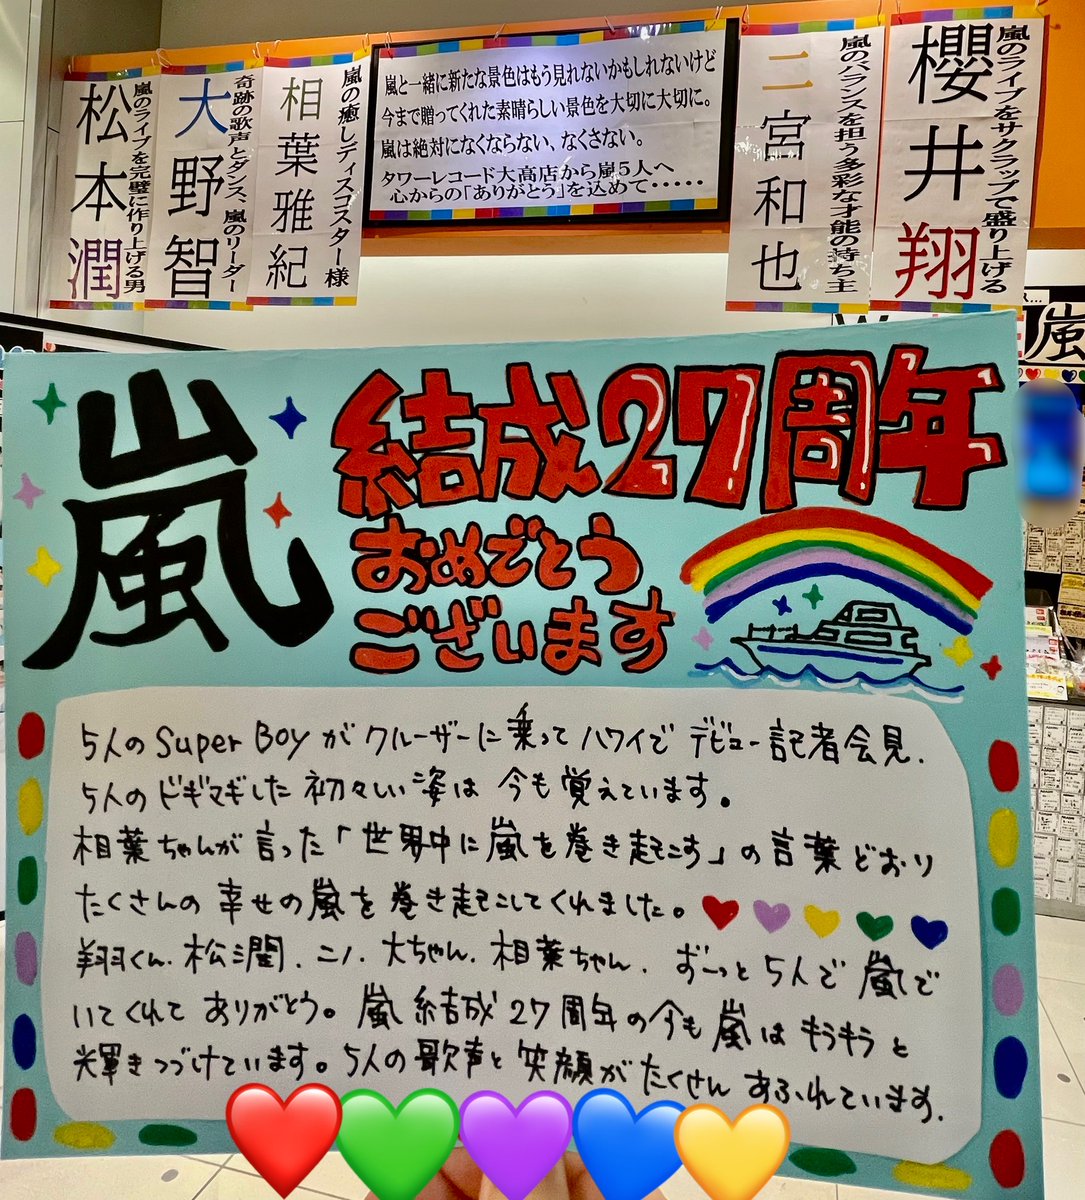 櫻井翔
嵐のライブをサクラップで盛り上げる
二宮和也
嵐のバランスを担う多彩な才能の持ち主
嵐と一緒に新たな景色はもう見れないかもしれないけど
今まで贈ってくれた素晴らしい景色を大切に大切に。
嵐は絶対になくならない、なくさない。
タワーレコード大高店から嵐5人へ
心からの「ありがとう」を込めて・・・・・
相葉雅紀
嵐の癒しディスコスター様
大野智
奇跡の歌声とダンス、嵐のリーダー
松本潤
嵐のライブを完璧に作り上げる男
嵐
嵐
結成27周年
おめでとう
ございます
5人のSuper Boyがクルーザーに乗ってハワイでデビュー記者会見.
5人のドギマギした初々しい姿は今も覚えています。
相葉ちゃんが言った「世界中に嵐を巻き起こす」の言葉どおり
たくさんの幸せの嵐を巻き起こしてくれました。
翔くん.松潤.ニノ.大ちゃん.相葉ちゃん.ずーっと5人で嵐で
いてくれてありがとう。嵐結成27周年の今も嵐はキラキラと
輝きつづけています。5人の歌声と笑顔がたくさんあふれています.